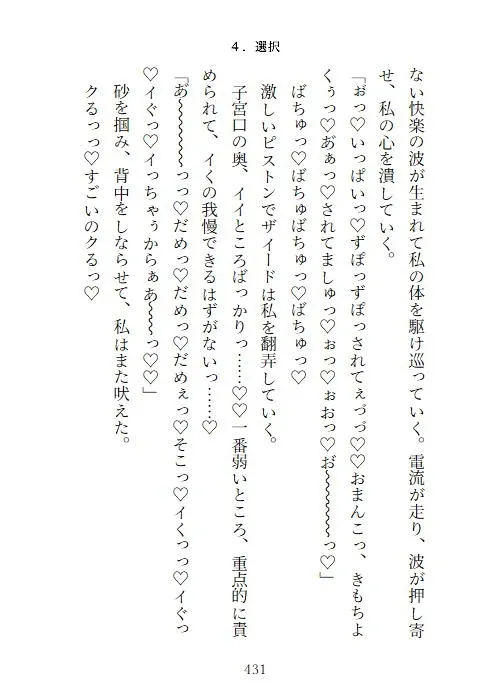 4．選択
ない快楽の波が生まれて私の体を駆け巡っていく。電流が走り、波が押し寄
せ、私の心を潰していく。
「ぉっ♡いっぱいっ♡ずぽっずぽっされてぇづづ♡♡おまんこっ、きもちよ
くぅっ♡あ゙ぁっ♡されてましゅっ♡ぉっ♡ぉおっ♡お゙〜〜〜〜〜っ♡」
ばちゅっ♡ばちゅばちゅっ♡ばちゅっ♡
激しいピストンでザイードは私を翻弄していく。
子宮口の奥、イイところばっかりっ……♡♡一番弱いところ、重点的に責
められて、イくの我慢できるはずがないっ……♡
「あ゙〜〜〜〜〜っっ♡だめっ♡だめっ♡だめぇっ♡そこっ♡イくっっ♡イぐっ
♡イぐっ♡イっちゃぅからぁあ〜〜っ♡♡」
砂を掴み、背中をしならせて、私はまた吠えた。
クるっっ♡すごいのクるっ♡
431